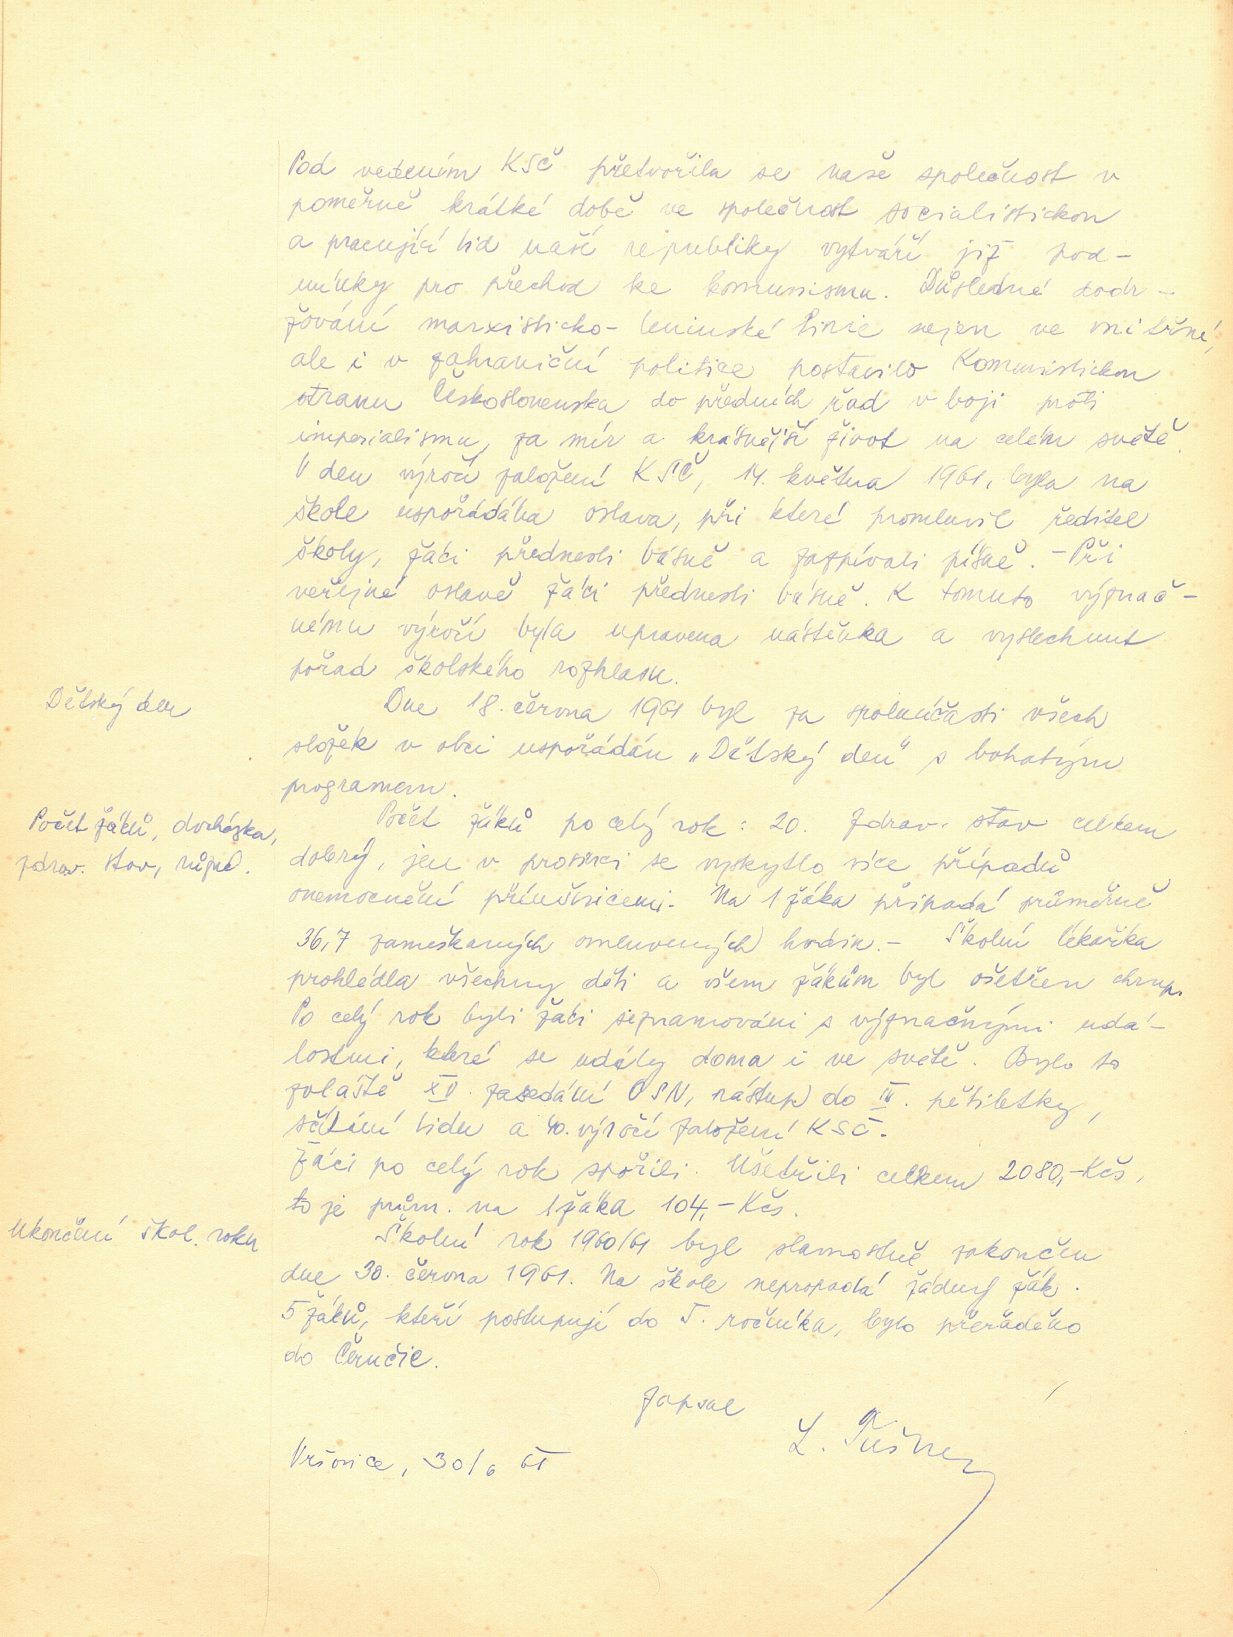 Pod vedením KSČ přetvořila se naše společnost v
poměrně krátké době ve společnost socialistickou
a pracující lid naší republiky vytváří již pod-
mínky pro přechod ke komunismu. Důsledné dodr-
žování marxisticko-leninské linie nejen ve vnitřní,
ale i v zahraniční politice postavilo Komunistickou
stranu Československa do předních řad v boji proti
imperialismu, za mír a krásnější život na celém světě.
V den výročí založení KSČ, 14. května 1961, byla na
škole uspořádána oslava, při které promluvil ředitel
školy, žáci přednesli básně a zazpívali písně. - Při
veřejné oslavě žáci přednesli básně. K tomuto význač-
nému výročí byla upravena nástěnka a vyslechnut
pořad školského rozhlasu.
Dětský den
Dne 18. června 1961 byl za spoluúčasti všech
složek v obci uspořádán „Dětský den" s bohatým
programem.
Počet žáků, docházka,
zdrav. stav, různé.
Počet žáků po celý rok: 20. Zdrav. stav celkem
dobrý, jen v prosinci se vyskytlo více případů
onemocnění příušnicemi. Na 1 žáka připadá průměrně
36,7 zameškaných omluvených hodin. - Školní lékařka
prohlédla všechny děti a všem žákům byl ošetřen chrup.
Po celý rok byli žáci seznamováni s význačnými udá-
lostmi, které se udály doma i ve světě. Bylo to
zvláště XV. zasedání OSN, nástup do III. pětiletky,
sčítání lidu a 40. výročí založení KSČ.
Žáci po celý rok spořili. Ušetřili celkem 2080,-Kčs,
to je prům. na 1 žáka 104,-Kčs.
Ukončení škol. roku
Školní rok 1960/61 byl slavnostně zakončen
dne 30. června 1961. Na škole nepropadá žádný žák.
5 žáků, kteří postupují do 5. ročníka, bylo přeřaděno
do Černčic.
Zapsal
Vršovice, 30/6 61